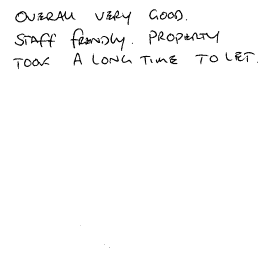 OVERALL VERY GOOD.
STAFF FRIENDLY. PROPERTY
TOOK A LONG TIME TO LET.